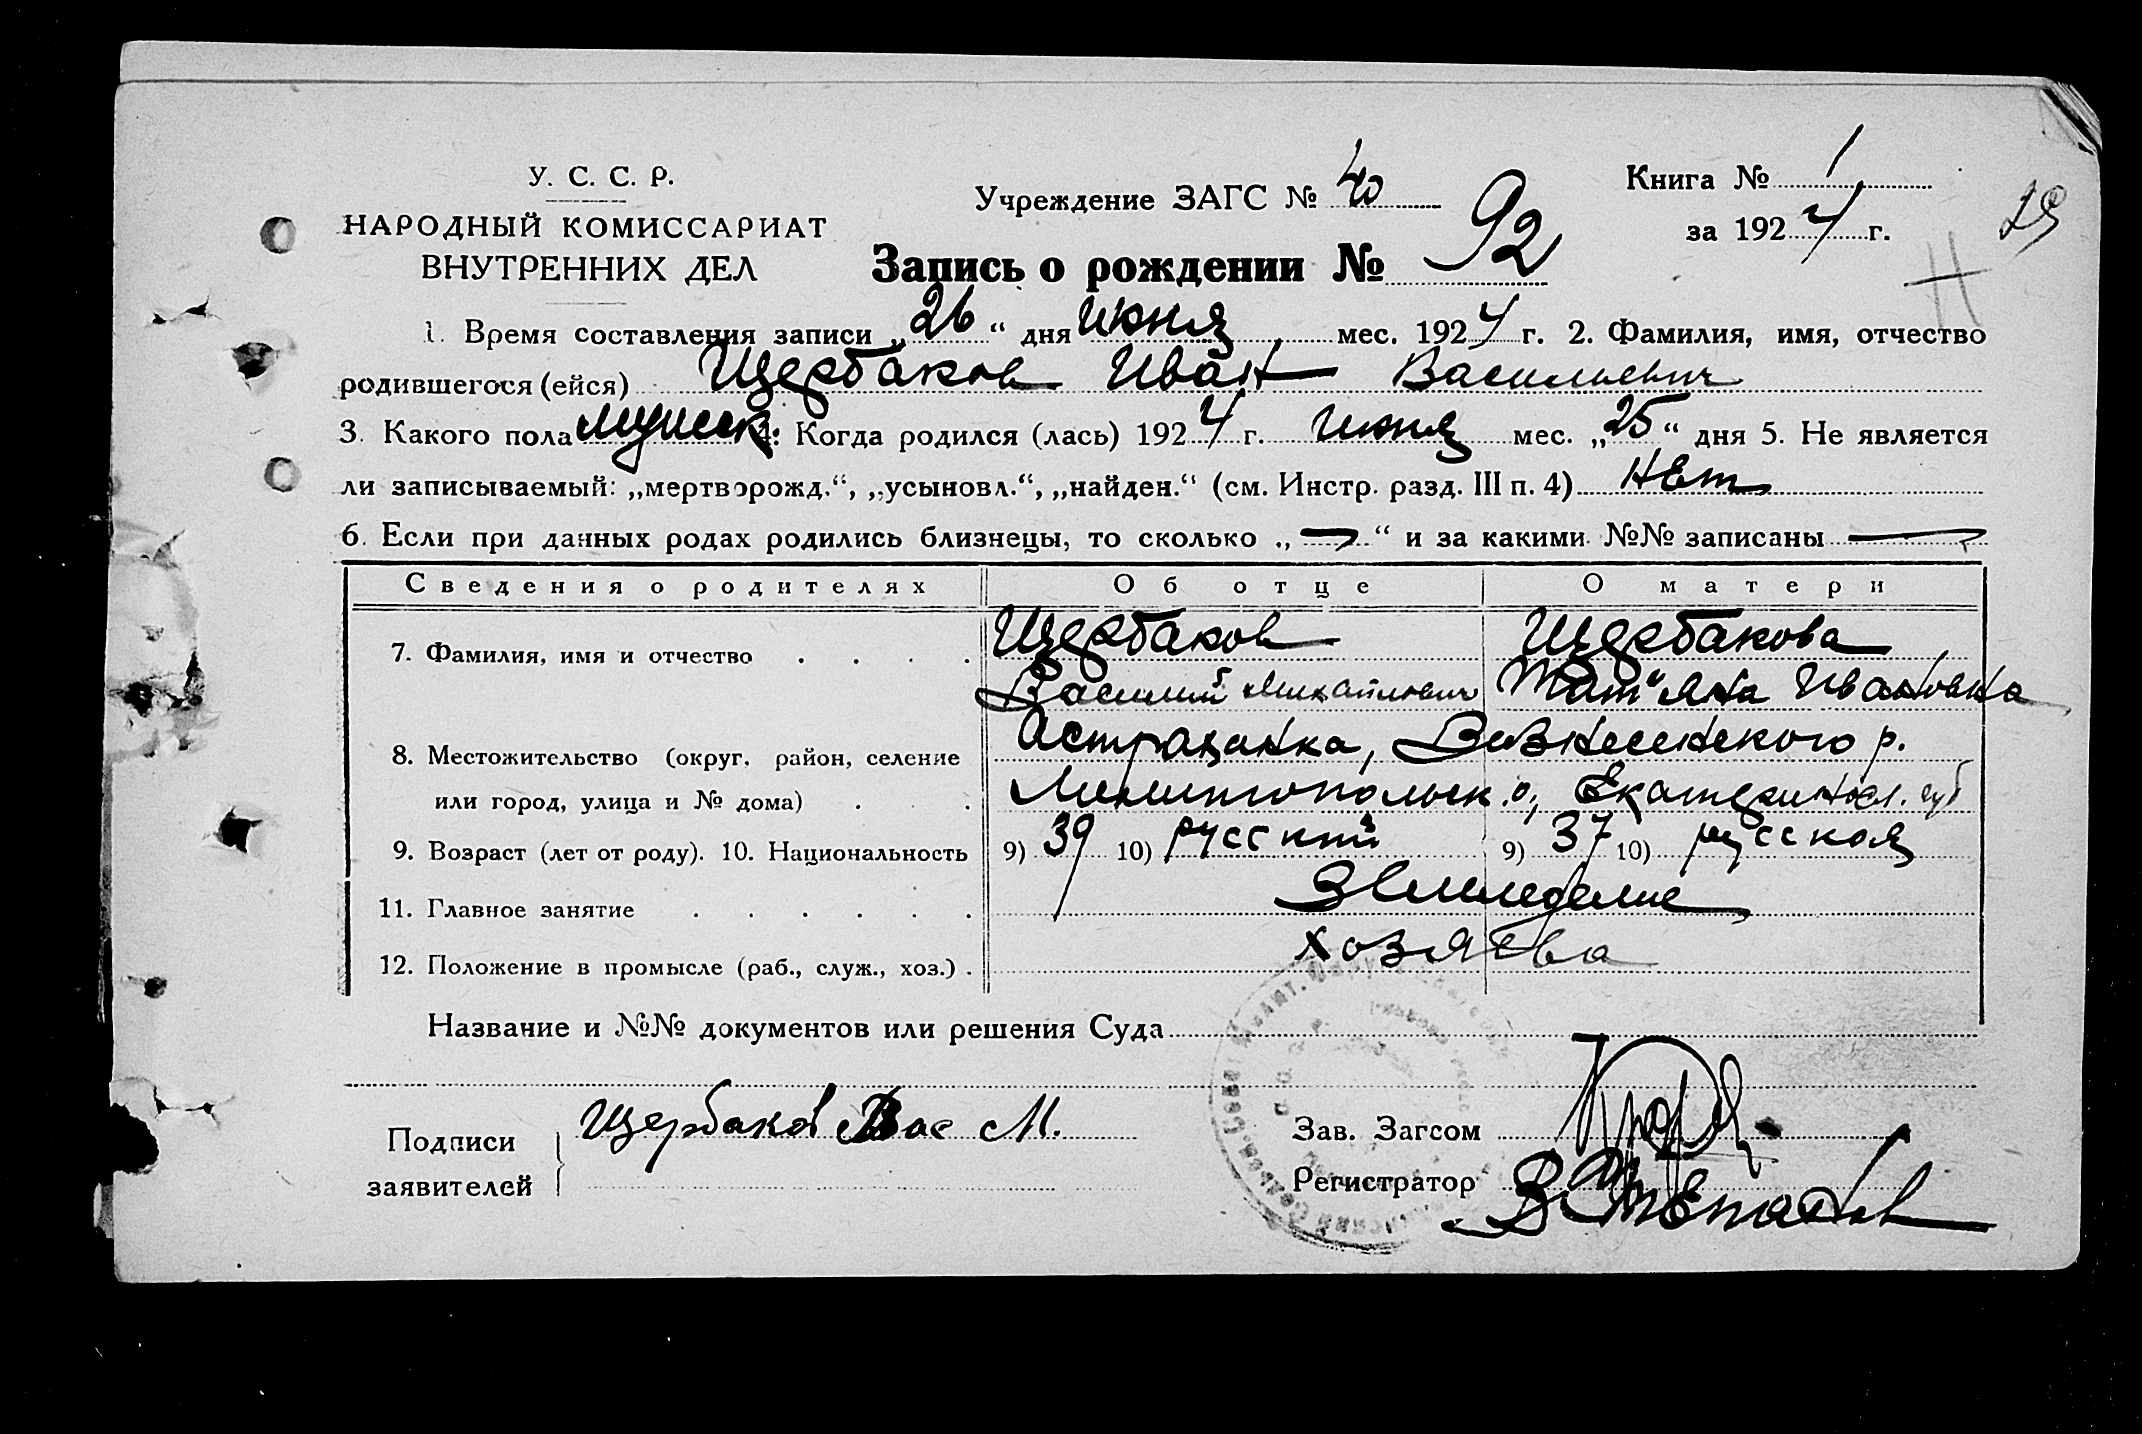 У. С. С. Р.
НАРОДНЫЙ КОМИССАРИАТ
ВНУТРЕННИХ ДЕЛ
Учреждение ЗАГС № 40
Книга № 1
за 1924 г.
29
Запись о рождении № 92
1. Время составления записи „26“ дня июня мес. 1924 г. 2. Фамилия, имя, отчество
родившегося (ейся) Щербаков Иван Васильевич
3. Какого пола мужск. 4. Когда родился (лась) 1924 г. июня мес. „25“ дня 5. Не является
ли записываемый: „мертворожд.“, „усыновл.“, „найден.“ (см. Инстр. разд. III п. 4) нет
6. Если при данных родах родились близнецы, то сколько „—“ и за какими №№ записаны —
Сведения о родителях Об отце О матери
7. Фамилия, имя и отчество . . . . Щербаков Щербакова
Василий Михайлович Тат"яна Ивановна
8. Местожительство (округ, район, селение Астраханка, Вознесенского р.
или город, улица и № дома) . . Мелитопольск. о, Екатериносл. губ
9. Возраст (лет от роду). 10. Национальность 9) 39 10) русский 9) 37 10) русская
11. Главное занятие . . . . . . Земледелие
12. Положение в промысле (раб., служ., хоз.) . хозяева
Название и №№ документов или решения Суда
Подписи
заявителей
Щербаков Вас М.
Зав. Загсом
Регистратор